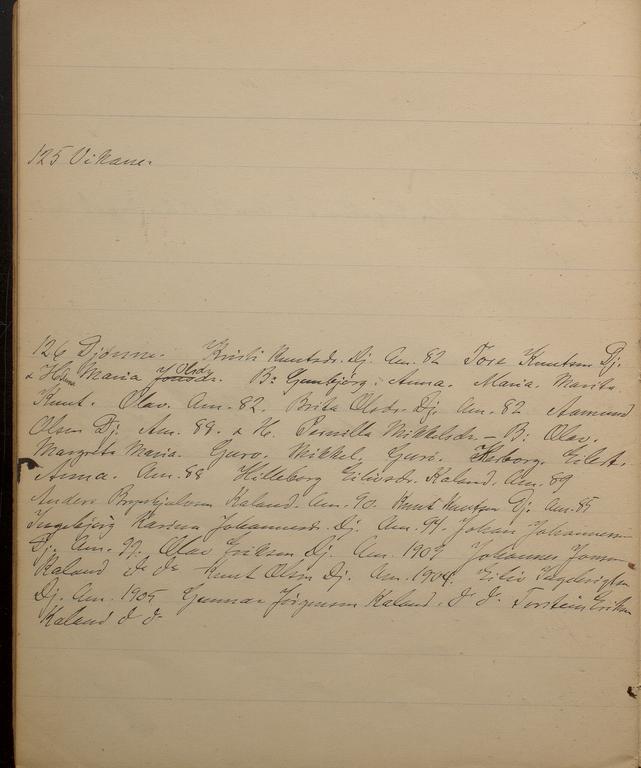 125 Vikane.
126 Djønne. Kristi Knutsdr. Dj. Am. 82 Tore Knutsen Dj.
& H Maria Jonsdr. Olsdr B: Gunbjörg. Anna. Maria. Marita.
Knut. Olav. Am. 82. Brita Olsdr. Dj. Am. 82 Aamund
Olsen Dj. Am. 89. & H. Pernilla Mikkelsdr. – B: Olav.
Margreta Maria. Guro. Mikkel. Guri. Herborg. Eilert.
Anna. Am. 88 Hilleborg Eilivsdr. Kaland. Am. 89
Anders Kaland. Am. 90. Knut Knutsen Dj. Am. 85
Ingebjörg Karina Johannesdr. Dj. Am. 94. Johan Johannessen
Dj. Am. 99. Olav Eriksen Dj. Am. 1902 Johannes Jonson
Kaland do do Knut Olsen Dj. Am. 1904. Eiliv
Dj. Am. 1905 Gunnar Jörgenson Kaland. do do. Torstein Eriksen
Kaland do do